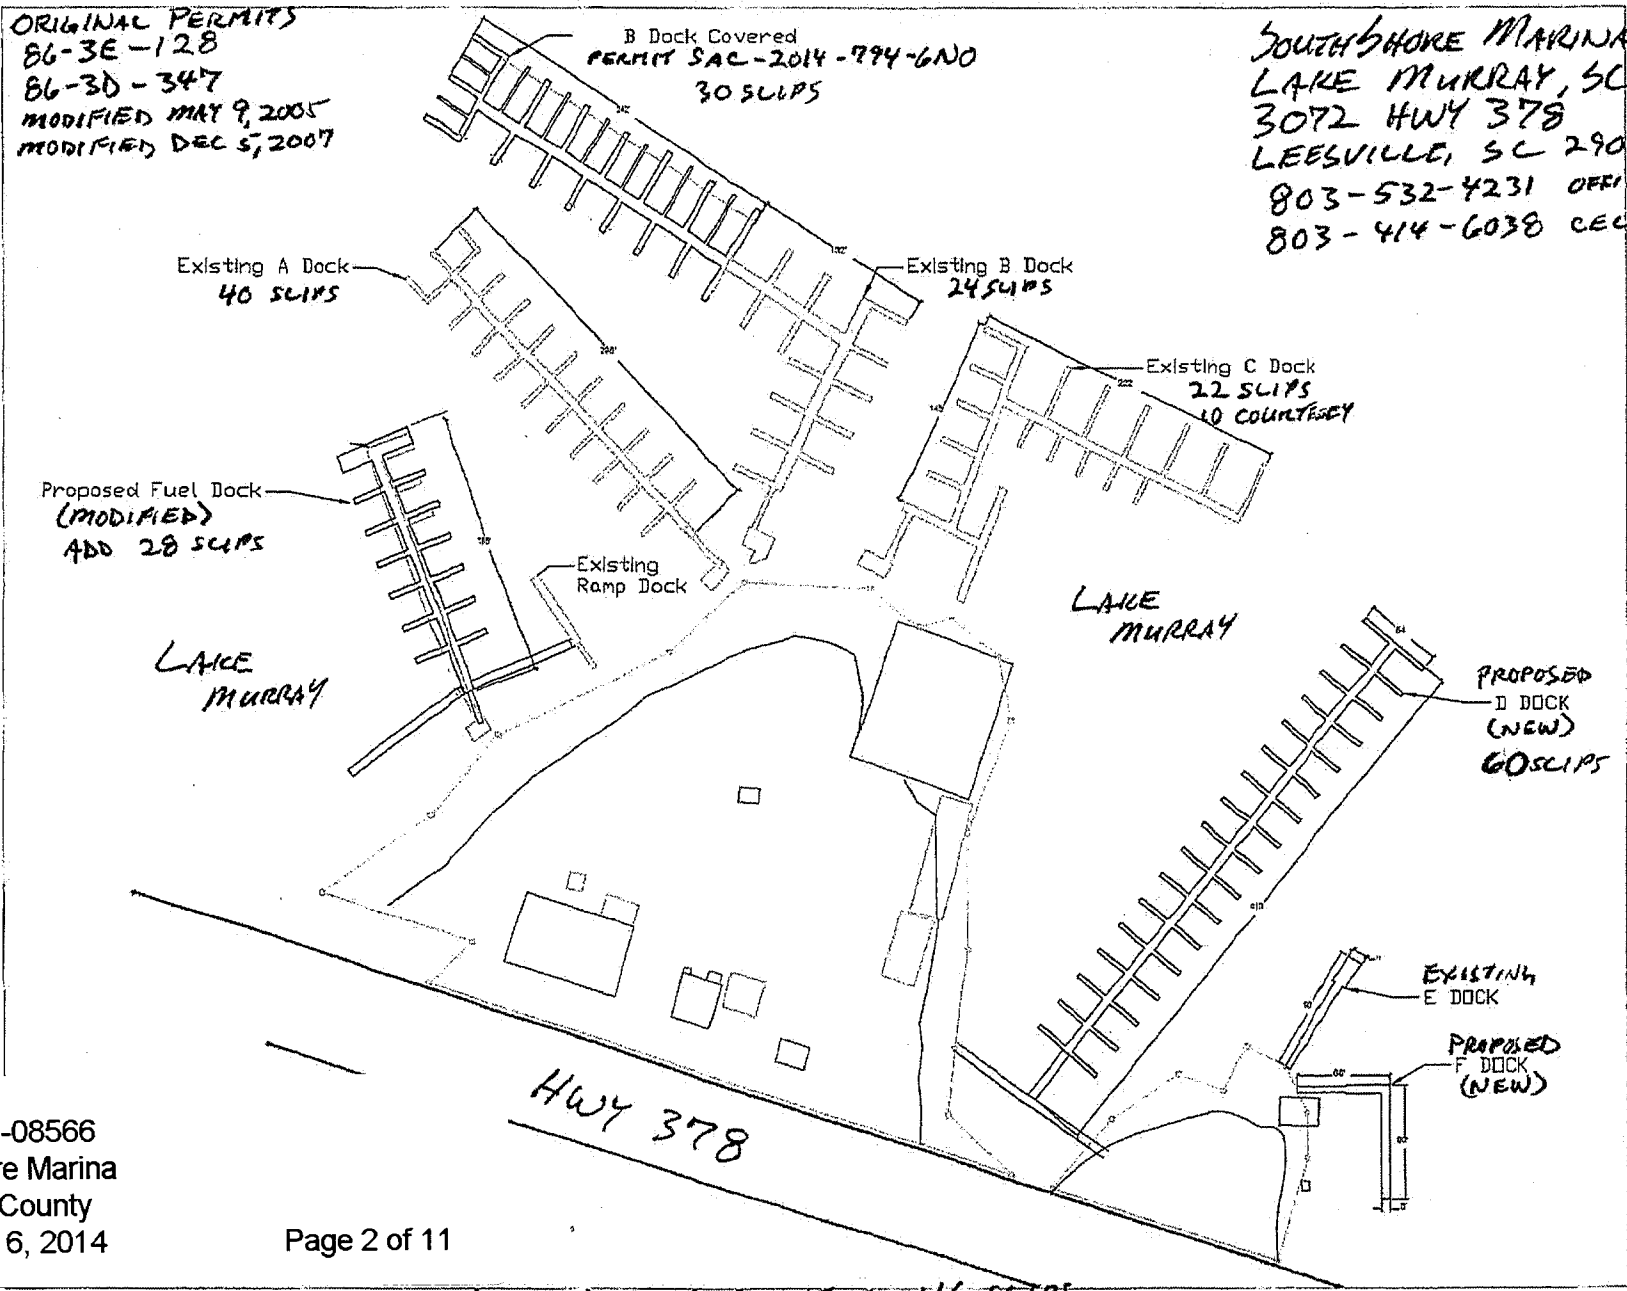 ORIGINAL PERMITS
86-3E-128
86-3D-347
MODIFIED MAY 9, 2005
MODIFIED DEC 5, 2007
B Dock Covered
PERMIT SAC-2014-794-6NO
30 SLIPS
SOUTHSHORE MARINA
LAKE MURRAY, SC
3072 HWY 378
LEESVILLE, SC 290
803-532-4231 OFFI
803-414-6038 CEL
Existing A Dock
40 SLIPS
Existing B Dock
24 SLIPS
Existing C Dock
22 SLIPS
10 COURTESEY
Proposed Fuel Dock
(MODIFIED)
ADD 28 SLIPS
Existing
Ramp Dock
LAKE
MURRAY
LAKE
MURRAY
PROPOSED
D DOCK
(NEW)
60 SLIPS
EXISTING
E DOCK
PROPOSED
F DOCK
(NEW)
HWY 378
-08566
re Marina
County
6, 2014
Page 2 of 11